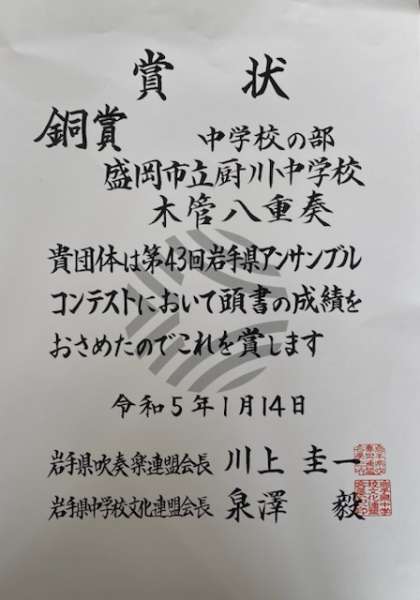 賞状
銅賞 中学校の部
盛岡市立厨川中学校
木管八重奏
貴団体は第43回岩手県アンサンブル
コンテストにおいて頭書の成績を
おさめたのでこれを賞します
令和5年1月14日
岩手県吹奏楽連盟会長 川上 圭一
岩手県中学校文化連盟会長 泉澤 毅